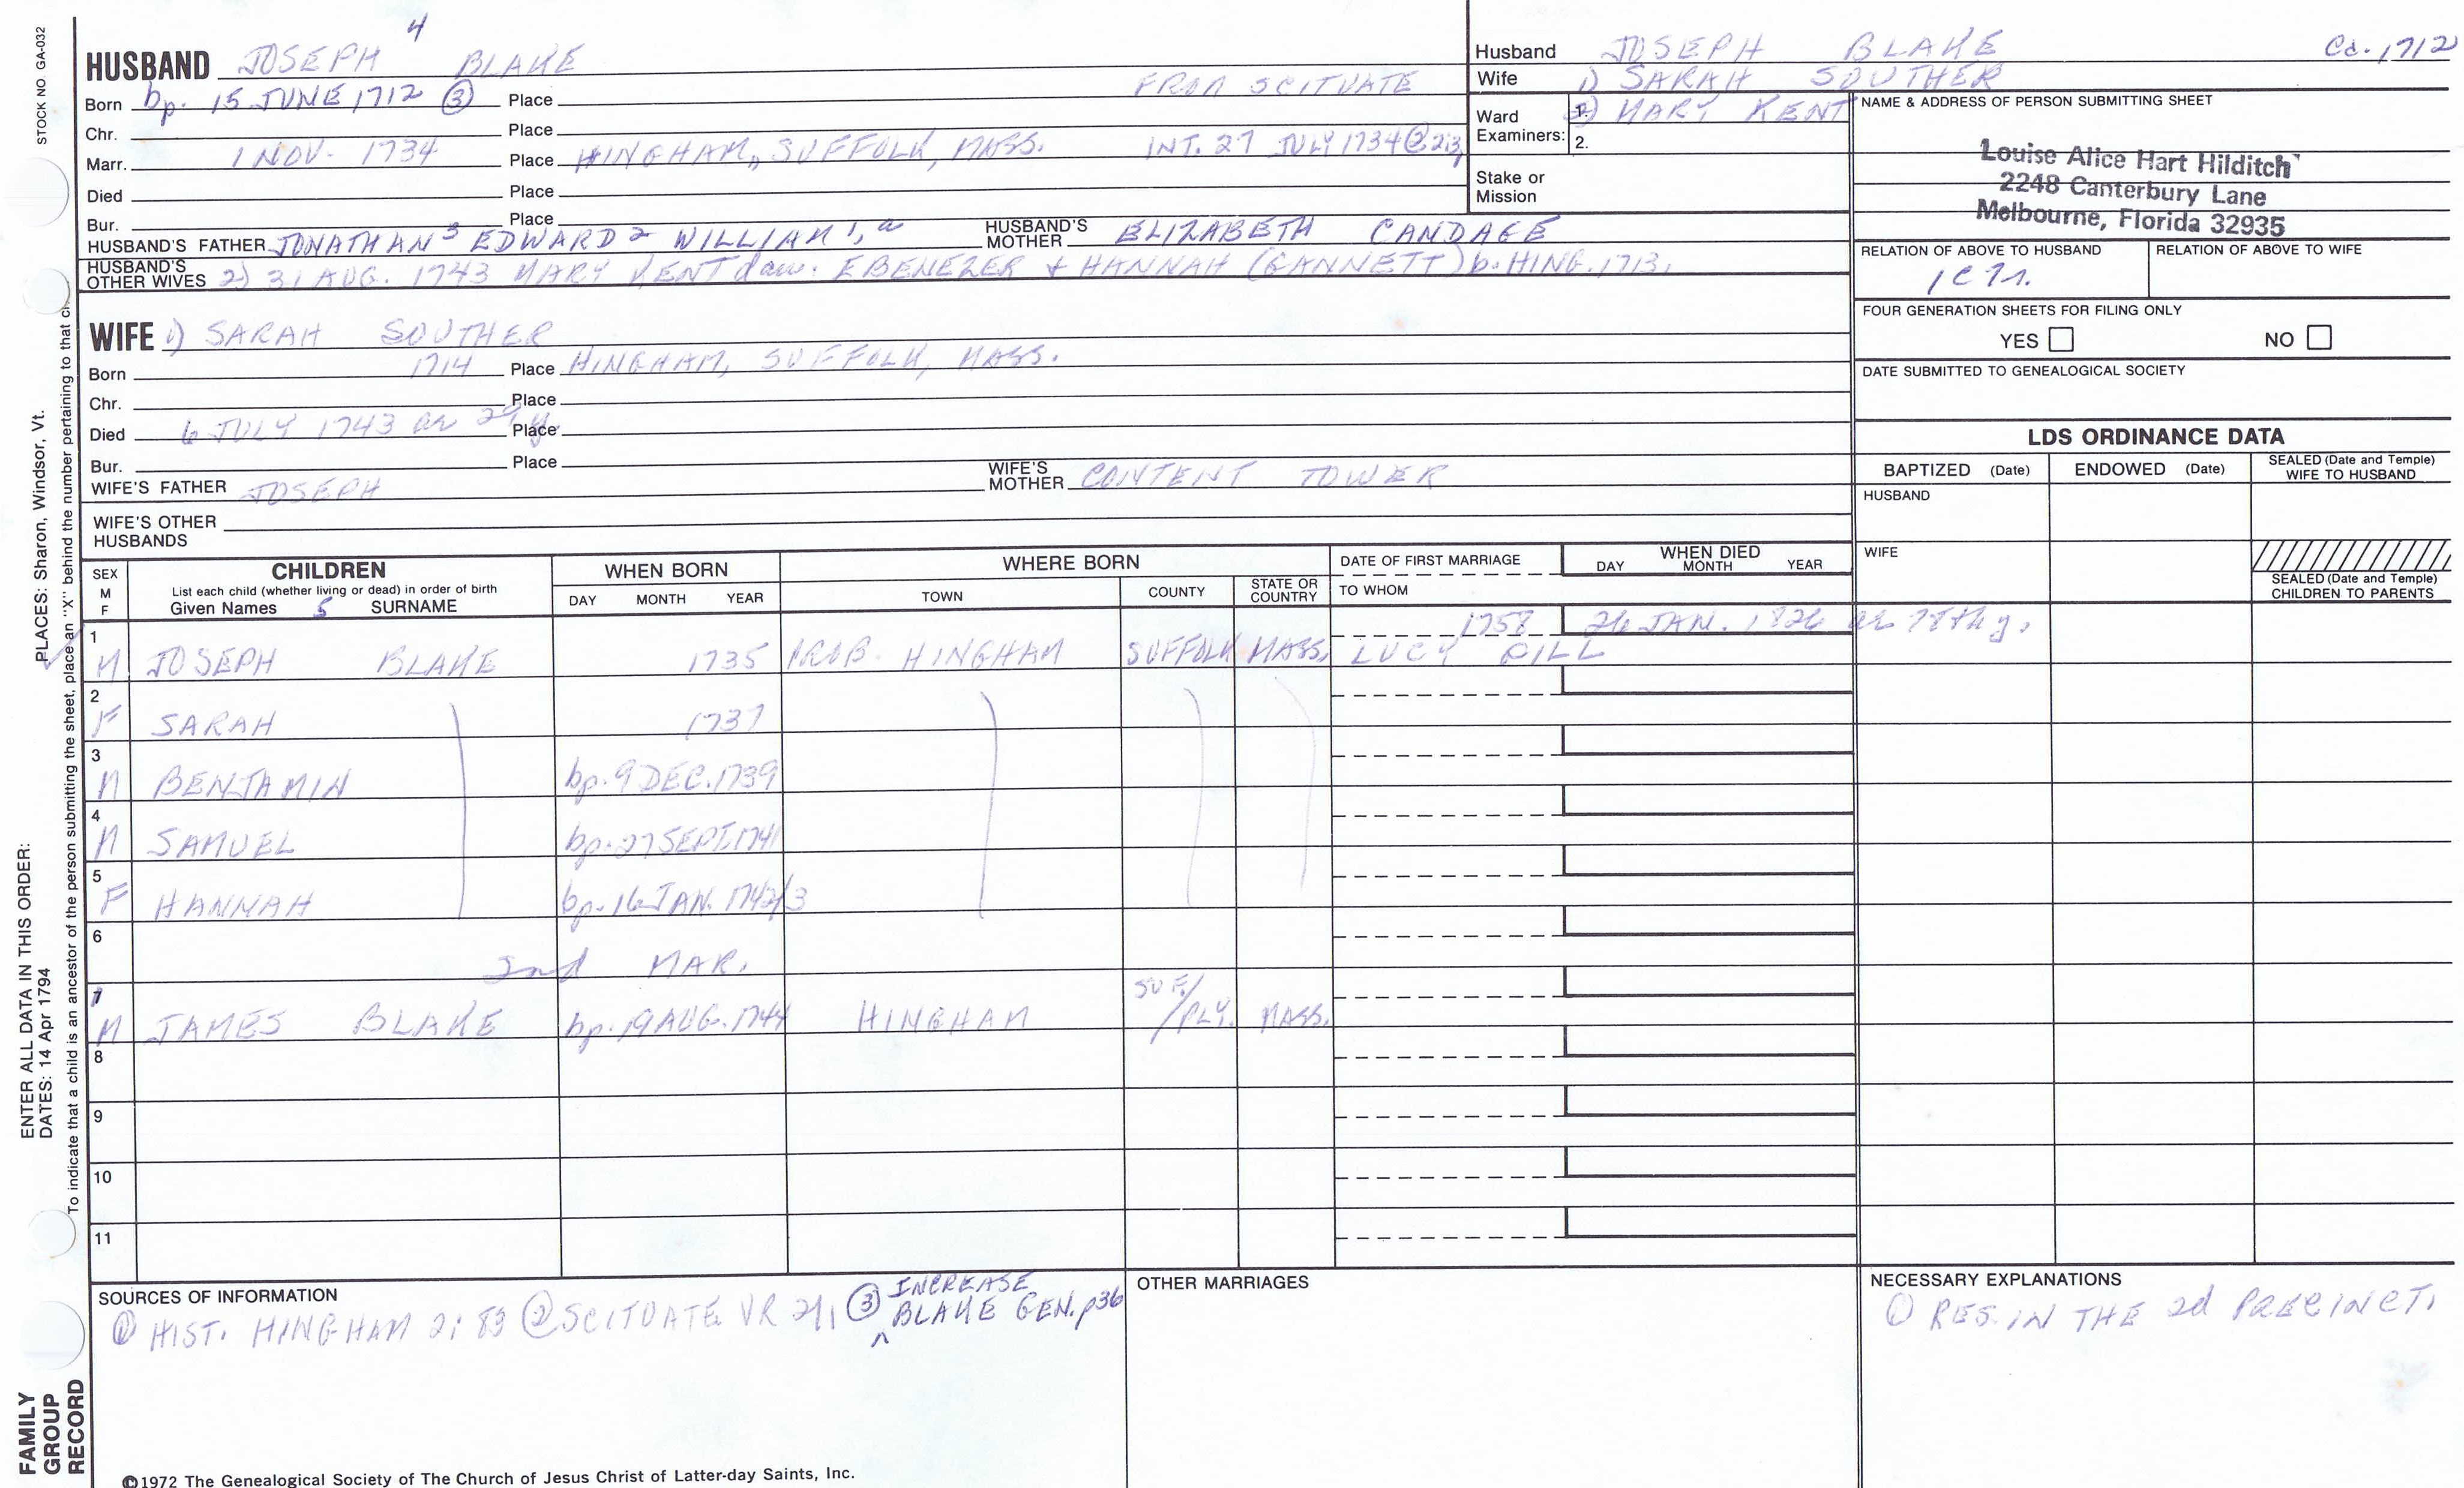 STOCK NO GA-032
PLACES: Sharon, Windsor, Vt.
ENTER ALL DATA IN THIS ORDER:
DATES: 14 Apr 1794
To indicate that a child is an ancestor of the person submitting the sheet, place an "X" behind the number pertaining to that
FAMILY
GROUP
RECORD
HUSBAND JOSEPH 4 BLAKE
Born bp. 15 JUNE 1712 ③ Place FROM SCITUATE
Chr. Place
Marr. 1 NOV. 1734 Place HINGHAM, SUFFOLK, MASS. INT. 27 JULY 1734
Died Place
Bur. Place
HUSBAND'S FATHER JONATHAN 3 EDWARD 2 WILLIAM 1, a HUSBAND'S MOTHER ELIZABETH CANDAGE
HUSBAND'S OTHER WIVES 2) 31 AUG. 1743 MARY KENT dau. EBENEZER + HANNAH (GANNETT) b. HING. 1713.
WIFE 1) SARAH SOUTHER
Born 1714 Place HINGHAM, SUFFOLK, MASS.
Chr. Place
Died 6 JULY 1743 ae 29 y. Place
Bur. Place
WIFE'S FATHER JOSEPH WIFE'S MOTHER CONTENT TOWER
WIFE'S OTHER HUSBANDS
Husband JOSEPH BLAKE Cd. 1712
Wife 1) SARAH SOUTHER
Ward Examiners: 1. 2) MARY KENT
2.
Stake or Mission
NAME & ADDRESS OF PERSON SUBMITTING SHEET
Louise Alice Hart Hilditch
2248 Canterbury Lane
Melbourne, Florida 32935
RELATION OF ABOVE TO HUSBAND RELATION OF ABOVE TO WIFE
FOUR GENERATION SHEETS FOR FILING ONLY
YES NO
DATE SUBMITTED TO GENEALOGICAL SOCIETY
LDS ORDINANCE DATA
BAPTIZED (Date) ENDOWED (Date) SEALED (Date and Temple) WIFE TO HUSBAND
HUSBAND
WIFE
SEALED (Date and Temple) CHILDREN TO PARENTS
SEX M F CHILDREN WHEN BORN WHERE BORN DATE OF FIRST MARRIAGE WHEN DIED
List each child (whether living or dead) in order of birth
Given Names 5 SURNAME DAY MONTH YEAR TOWN COUNTY STATE OR COUNTRY TO WHOM DAY MONTH YEAR
1 M JOSEPH BLAKE 1735 PROB. HINGHAM SUFFOLK MASS. 1758 LUCY 26 JAN. 1826
2 F SARAH 1737
3 M BENJAMIN bp. 9 DEC. 1739
4 M SAMUEL bp. 27 SEPT. 1741
5 F HANNAH bp. 16 JAN. 1742/3
6 2nd MAR.
7 M JAMES BLAKE bp. 19 AUG. 1744 HINGHAM SUF./PLY. MASS.
8
9
10
11
SOURCES OF INFORMATION
① HIST. HINGHAM 2: 83 ② SCITUATE VR ③ INCREASE BLAKE GEN. p36
OTHER MARRIAGES
NECESSARY EXPLANATIONS
① RES. IN THE 2d PRECINCT.
©1972 The Genealogical Society of The Church of Jesus Christ of Latter-day Saints, Inc.